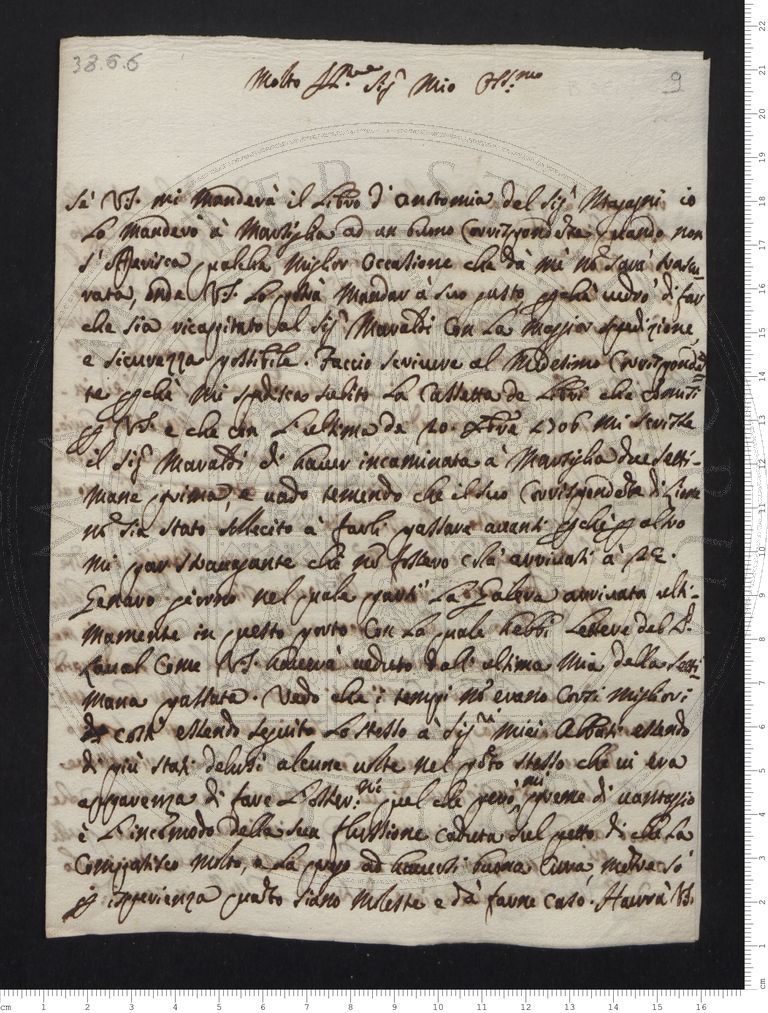 38.6.6
9
Molto Ill.re Sig.r Mio Oss.mo
Se VS. mi manderà il Libro d'anotomia del Sig.r Morgagni io
lo manderò à Marsiglia ad un buono Corrispondente quando non
s'offerisca qualche miglior occasione che dà mè nõ sarà trascu=
rata, onde VS. lo potrà mandar à suo gusto, pchè vedrò di far
che sia ricapitato al Sig.r Maraldi con la maggior spedizione,
e sicurezza possibile. Faccio scrivere al medesimo Corrisponde=
te pchè mi spedisca subito la Cassetta de Libri che
p VS. e che con l'ultima da 20. Xbre 1706 mi scrisse
il Sig.r Maraldi di haver incaminata à Marsiglia due setti=
mane prima, e vado temendo che il suo Corrispondẽte di Lione
nõ sia stato sollecito à farli passare avanti pchè p altro
mi par stravagante che nõ fossero colà arrivati à
Genaro giorno nel quale partì la Galera arrivata ulti=
mamente in questo porto con la quale hebbi lettere del P.
Laval come VS. haverà veduto dall'ultima mia della setti=
mana passata. Vedo che i tempi nõ erano costì migliori
essendo seguito lo stesso à Sig.ri miei Abbati essendo
di più stati delusi alcune volte nel pũto stesso che vi era
apparenza di fare l'osser.ni quel che però mi preme di vantaggio
è l'incõmodo della sua flussione caduta sul petto di che la
Compatisco molto, e la prego ad haversi buona cura mentre sò
p isperienza quãto siano moleste e dà farne caso. Haverà VS.